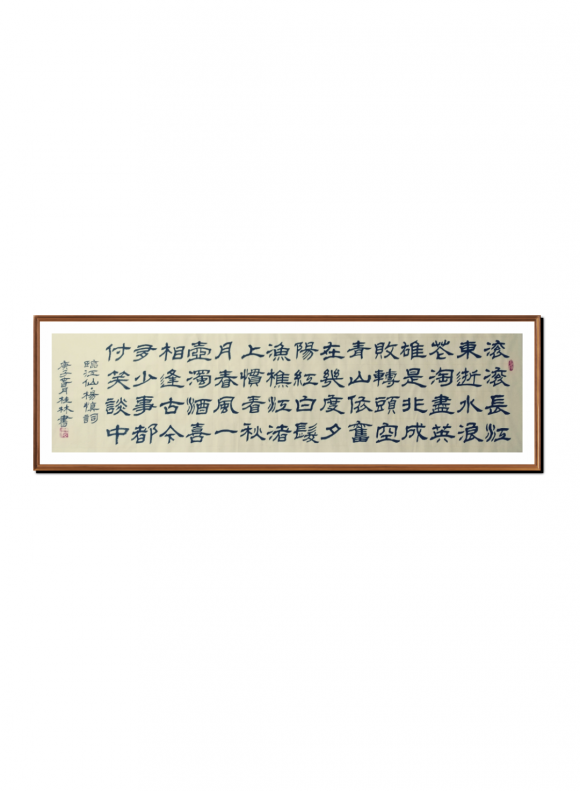 滚滚長江
東逝水浪
花淘盡英
雄是非成
敗轉頭空
青山依舊
在幾度夕
陽紅白髮
漁樵江渚
上慣看秋
月春風一
壺濁酒喜
相逢古今
多少事都
付笑談中
臨江仙·楊慎詞
庚子月桂林書